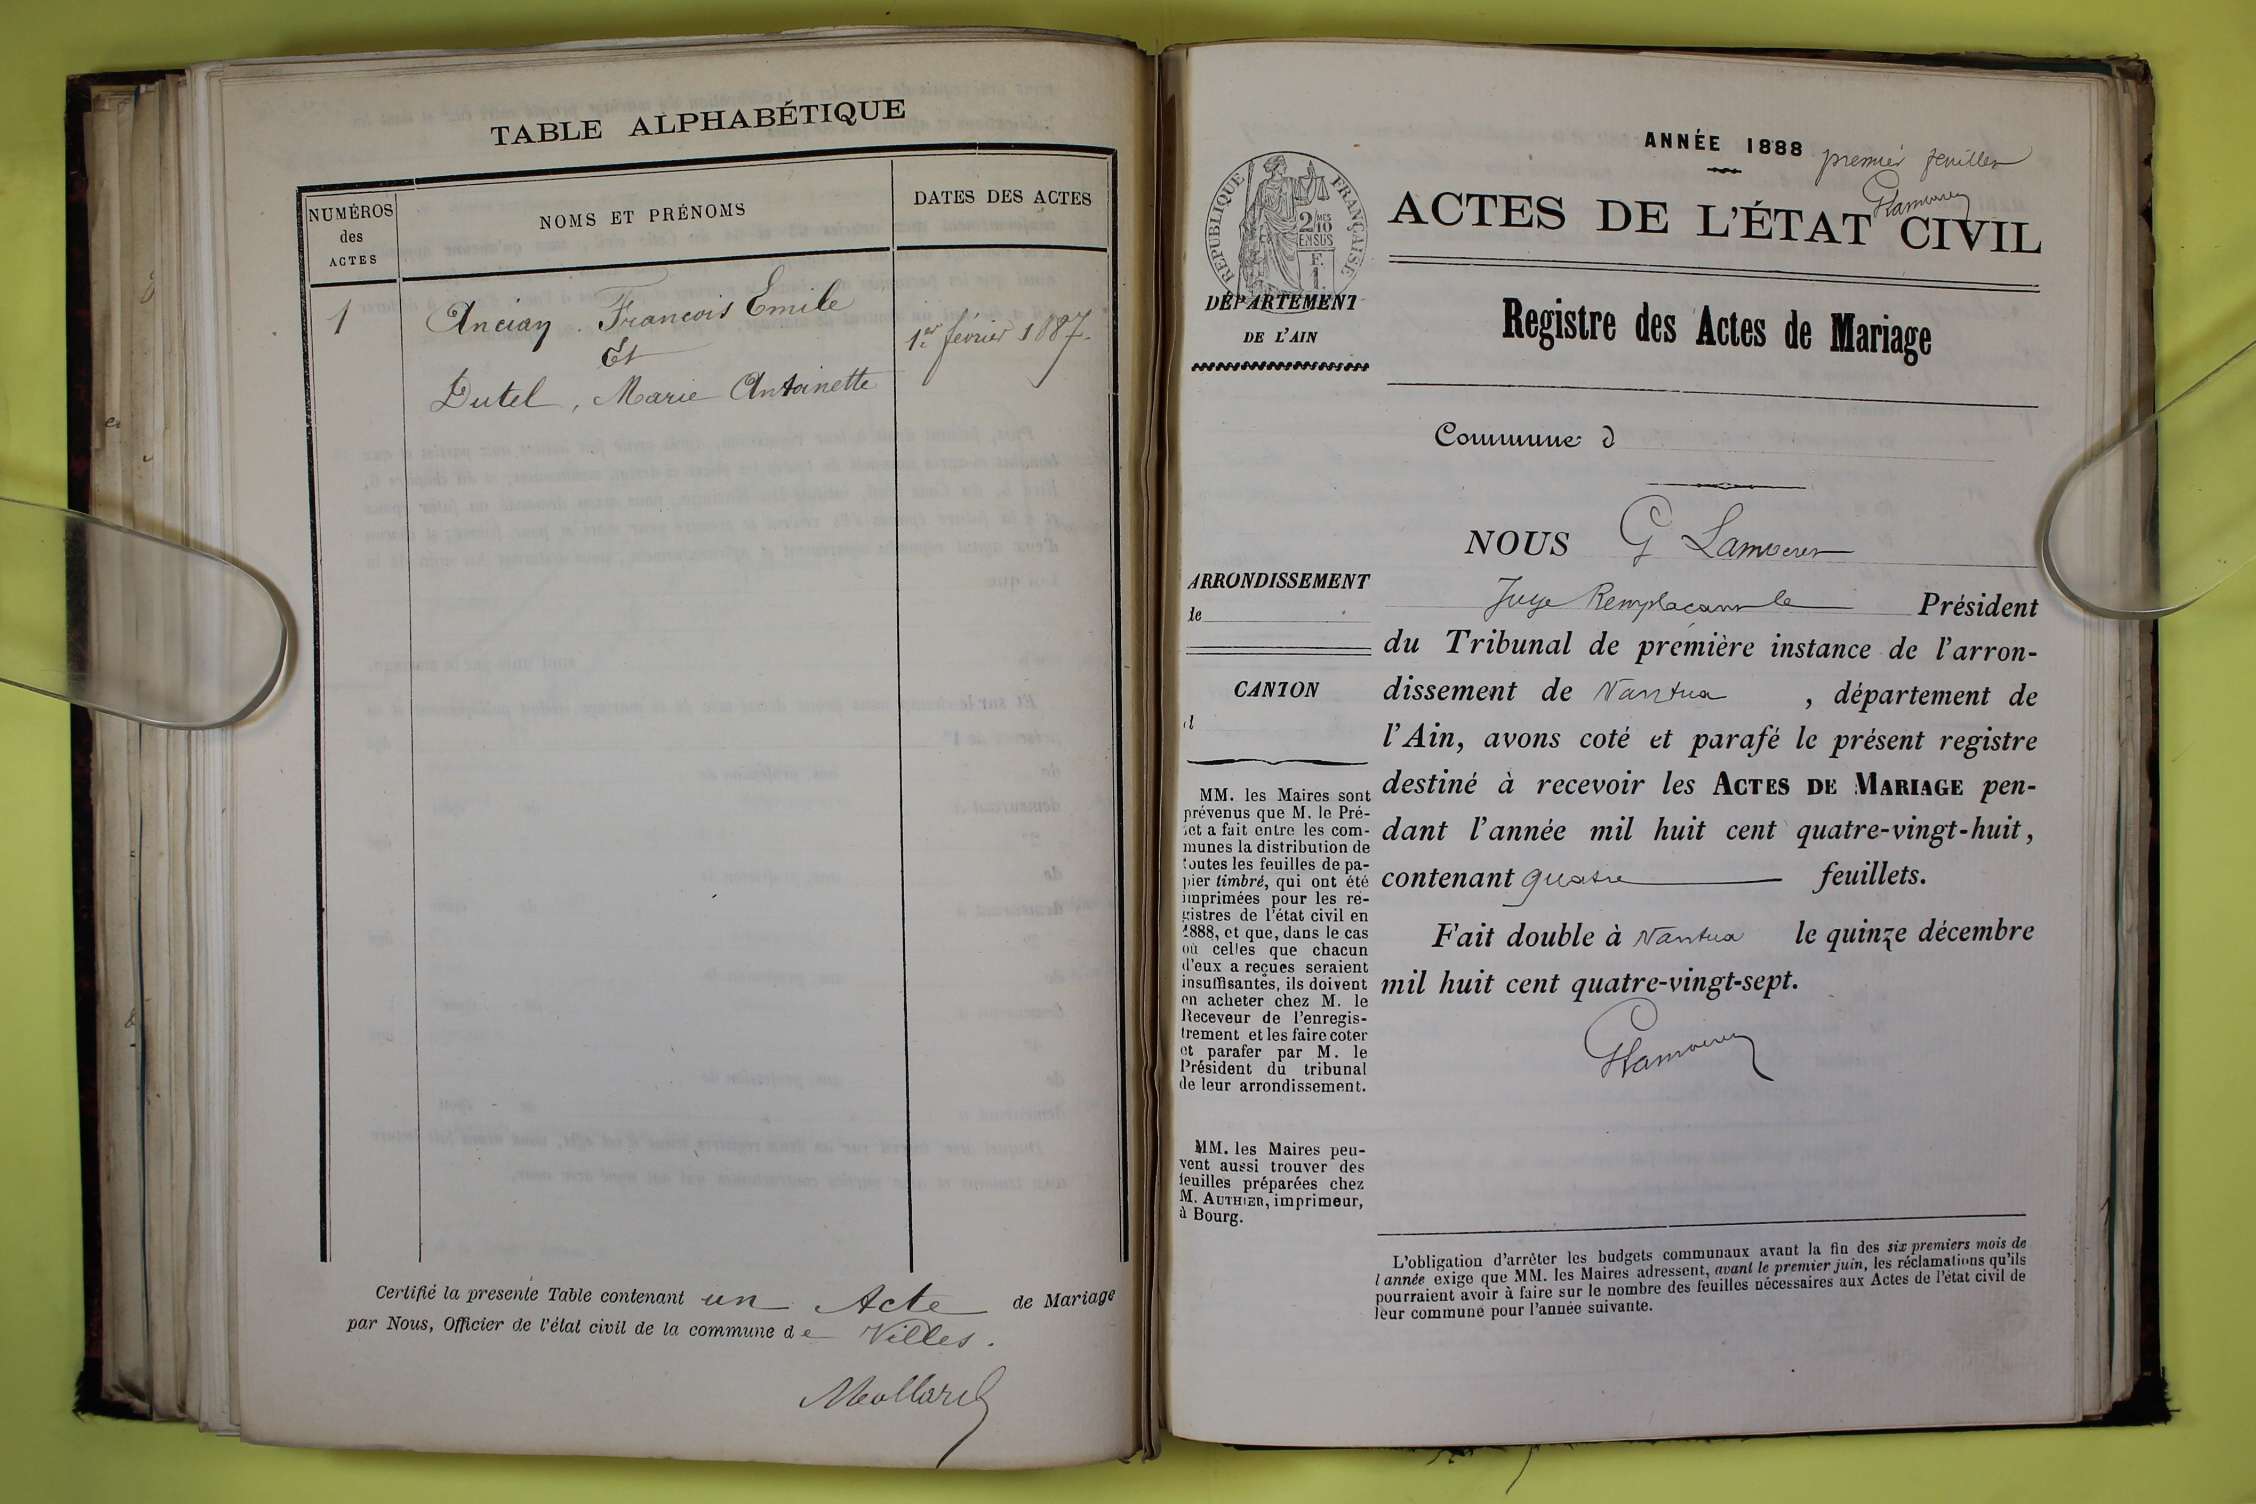 TABLE ALPHABÉTIQUE
NUMÉROS
des
ACTES
NOMS ET PRÉNOMS
DATES DES ACTES
1
Ancian François Emile
1er février 1887.
Et
Dutel, Marie Antoinette
Certifié la presente Table contenant un Acte de Mariage
par Nous, Officier de l'état civil de la commune de Villes.
Mollard
ANNÉE 1888
premier feuillet
ACTES DE L'ÉTAT CIVIL
RÉPUBLIQUE FRANÇAISE
2 MES
10
EN SUS
F.
1.
DÉPARTEMENT
DE L'AIN
Registre des Actes de Mariage
Commune d
NOUS G
ARRONDISSEMENT
de
Juge Remplaçant le Président
du Tribunal de première instance de l'arron-
CANTON
d
dissement de Nantua, département de
l'Ain, avons coté et parafé le présent registre
destiné à recevoir les ACTES DE MARIAGE pen-
dant l'année mil huit cent quatre-vingt-huit,
contenant quatre feuillets.
Fait double à Nantua le quinze décembre
mil huit cent quatre-vingt-sept.
MM. les Maires sont
prévenus que M. le Pré-
fet a fait entre les com-
munes la distribution de
toutes les feuilles de pa-
pier timbré, qui ont été
imprimées pour les re-
gistres de l'état civil en
1888, et que, dans le cas
où celles que chacun
d'eux a reçues seraient
insuffisantes, ils doivent
en acheter chez M. le
Receveur de l'enregis-
trement et les faire coter
et parafer par M. le
Président du tribunal
de leur arrondissement.
MM. les Maires peu-
vent aussi trouver des
feuilles préparées chez
M. AUTHIER, imprimeur,
à Bourg.
L'obligation d'arrêter les budgets communaux avant la fin des six premiers mois de
l'année exige que MM. les Maires adressent, avant le premier juin, les réclamations qu'ils
pourraient avoir à faire sur le nombre des feuilles nécessaires aux Actes de l'état civil de
leur commune pour l'année suivante.